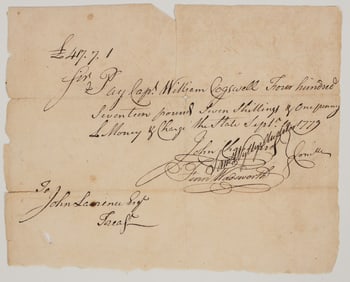 £417.7.1
Sir Pay Capt William Cogswell Four hundred
Seventeen pounds Seven Shillings & One penny
L Money & Charge the State Septr 1779
John
Fenn Wadsworth
Comtee
To
John Lawrence Esqr
Treasr